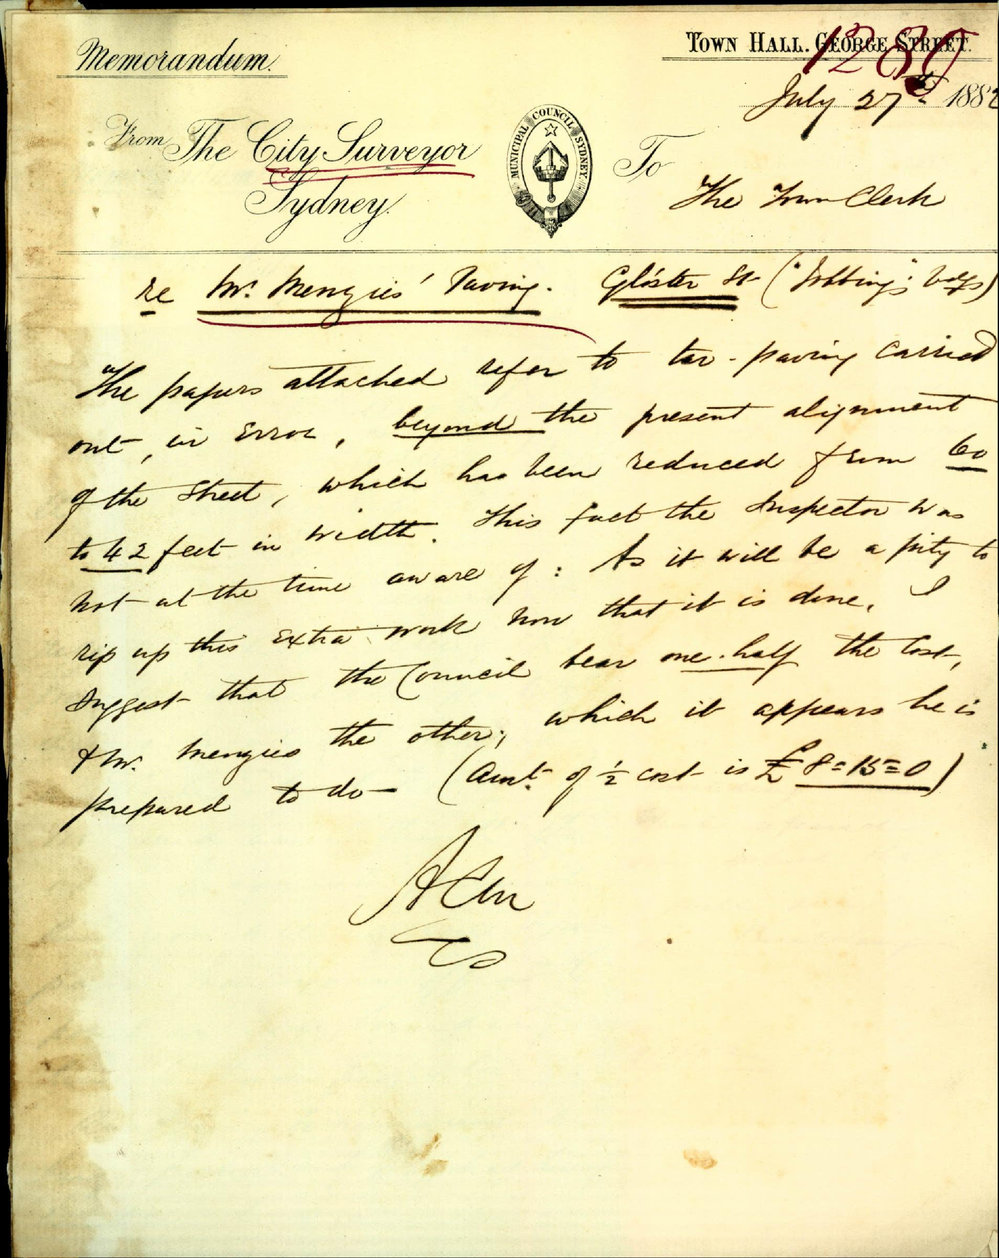 Memorandum.
TOWN HALL. GEORGE STREET.
1280
July 27th 1882
From The City Surveyor
Sydney.
MUNICIPAL COUNCIL SYDNEY.
To
The Town Clerk
re Mr. Menzies' Paving. Glo'ster St ("Jobbing"
The papers attached refer to tar-paving carried
out, in error, beyond the present alignment
of the Street, which has been reduced from 60
to 42 feet in width. This fact the Inspector was
not at the time aware of: As it will be a pity to
rip up this extra work now that it is done, I
suggest that the Council bear one-half the cost,
& Mr. Menzies the other; which it appears he is
prepared to do— (Amt. of ½ cost is £8=15=0)